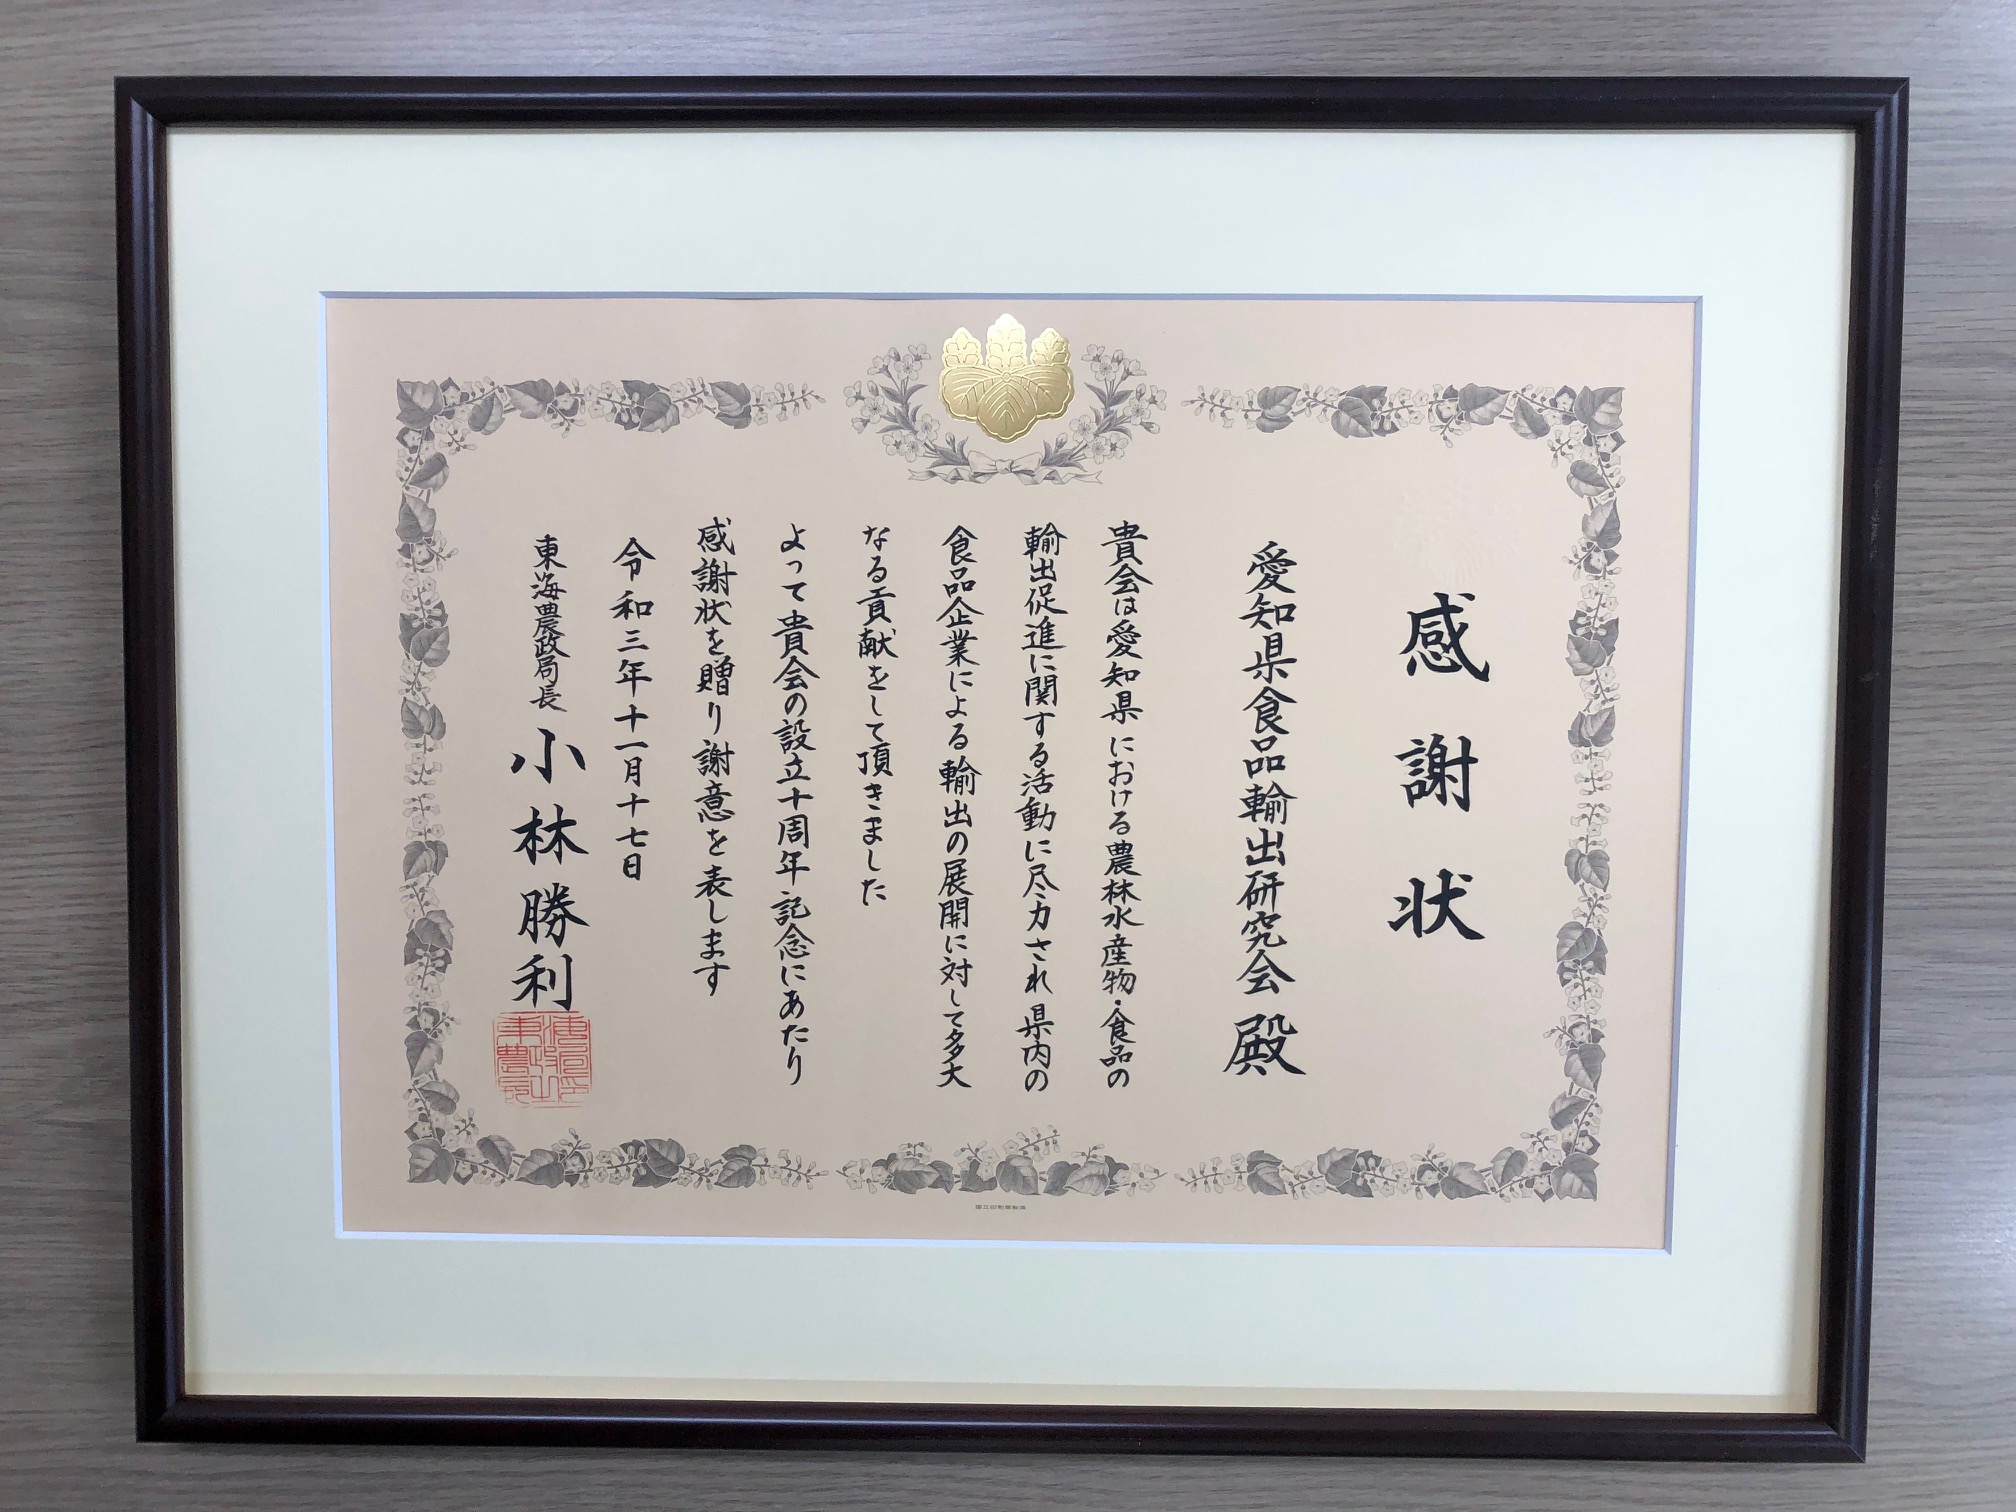 感謝状
愛知県食品輸出研究会殿
貴会は愛知県における農林水産物・食品の
輸出促進に関する活動に尽力され県内の
食品企業による輸出の展開に対して多大
なる貢献をして頂きました
よって貴会の設立十周年記念にあたり
感謝状を贈り謝意を表します
令和三年十一月十七日
東海農政局長 小林勝利
国立印刷局製造